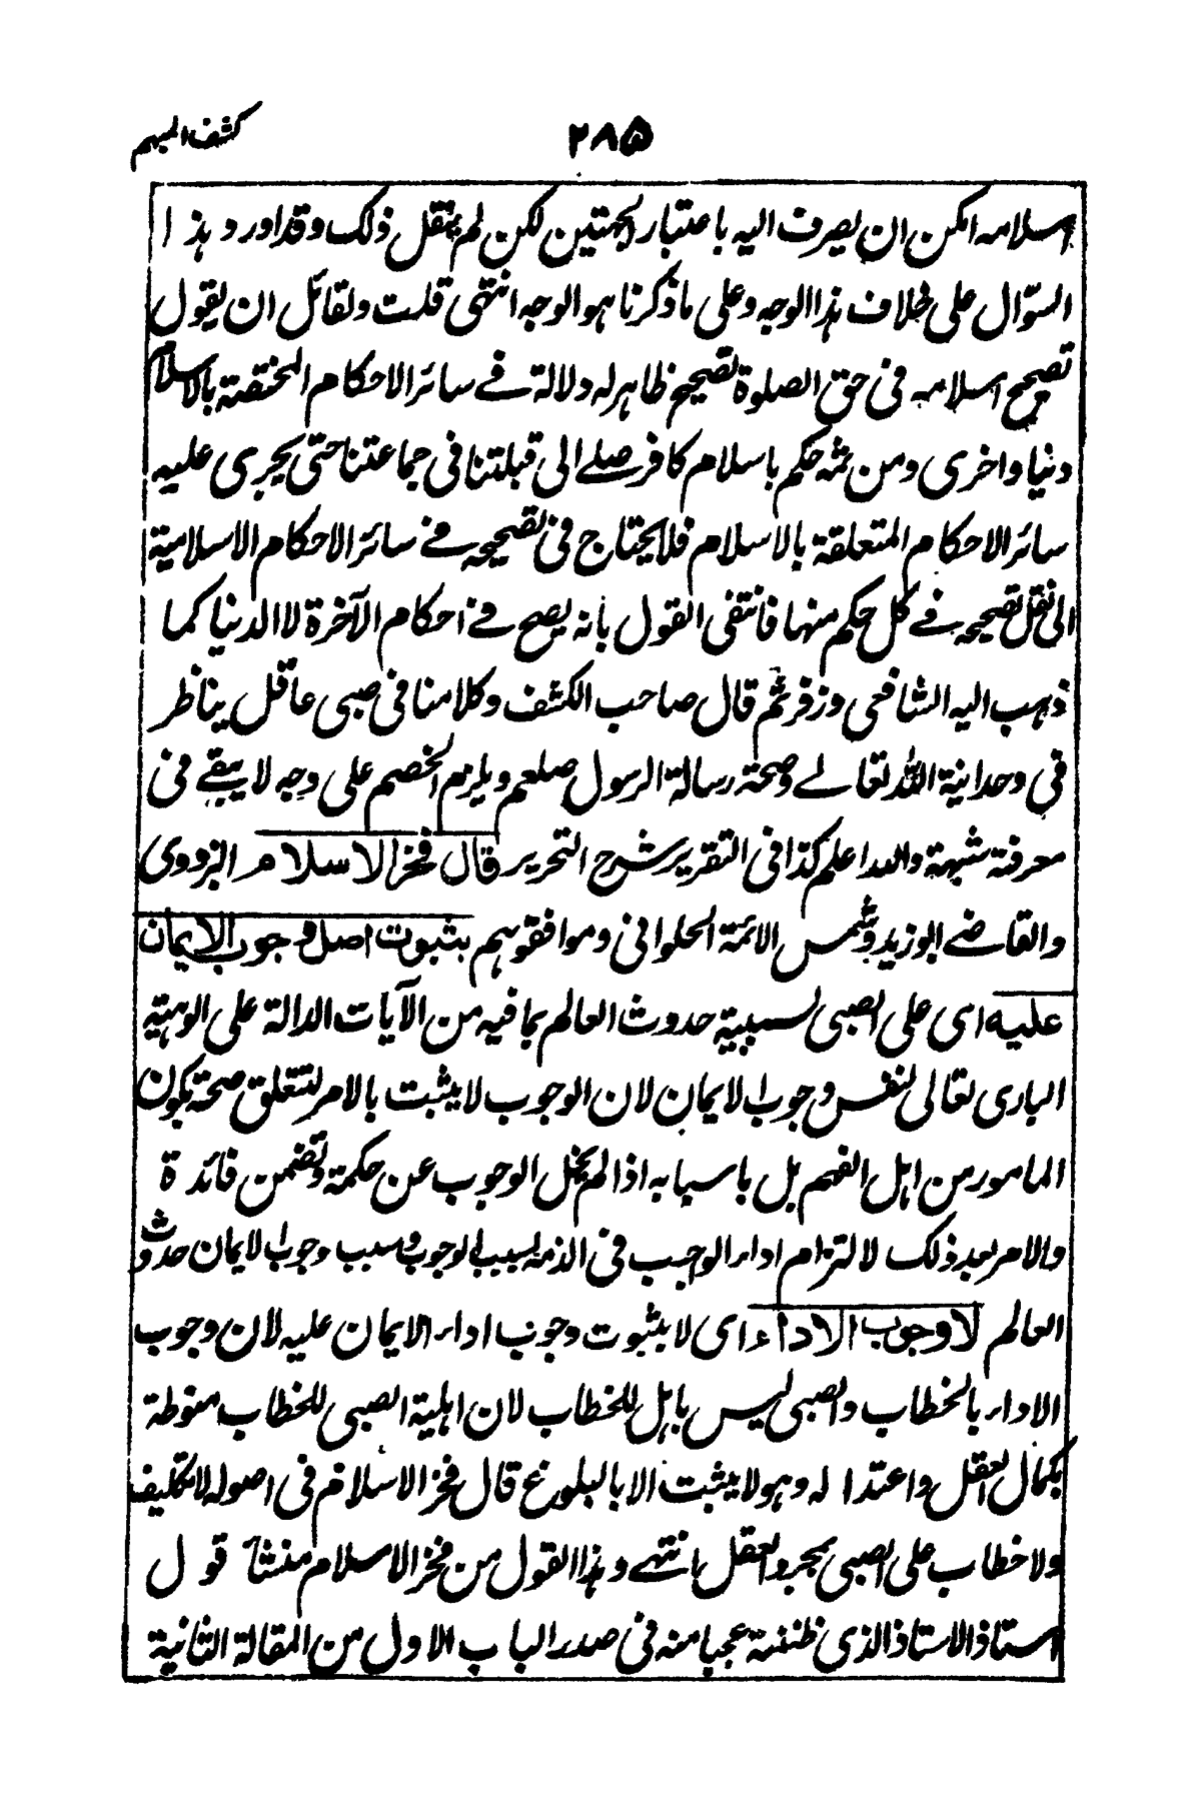 كشف المبهم
٢٨٥
اسلامه امكن ان يصرف اليه باعتبار الجهتين لكن لم ينقل ذلك وقد اورد هذا
السؤال على خلاف هذا الوجه وعلى ما ذكرنا هو الوجه انتهى قلت ولقائل ان يقول
تصحيح اسلامه فى حق الصلوة تصحيح ظاهر له دلالة فے سائر الاحكام المختصة بالاسلام
دنيا واخرى ومن ثمه حكم باسلام كافر صلے الى قبلتنا فى جماعتنا حتى يجرى عليه
سائر الاحكام المتعلقة بالاسلام فلا يحتاج فى تصحيحه فے سائر الاحكام الاسلامية
الى نقل تصحيحه فے كل حكم منها فانتفى القول بانه يصح فے احكام الآخرة لا الدنيا كما
ذهب اليه الشافعى وزفر ثم قال صاحب الكشف وكلامنا فى صبى عاقل يناظر
فى وحدانية الله تعالے وصحة رسالة الرسول صلعم ويلزم الخصم على وجه لا يبقے فى
معرفة شبهة والله اعلم كذا فى التقرير شرح التحرير قال فخر الاسلام البزدوى
والقاضے ابو زيد وشمس الائمة الحلوانى وموافقوهم بثبوت اصل وجوب الايمان
عليه اى على الصبى لسببية حدوث العالم بما فيه من الآيات الدالة على الوهية
البارى تعالى لنفس وجوب الايمان لان الوجوب لا يثبت بالامر لتتعلق صحة بكون
المامور من اهل الفهم بل باسبابه اذا لم يخل الوجوب عن حكمة وتضمن فائدة
والامر بعد ذلك لالتزام اداء الوجب فى الذمه بسبب الوجوب وسبب وجوب الايمان حدوث
العالم لا وجوب الاداء اى لا بثبوت وجوب اداء الايمان عليه لان وجوب
الاداء بالخطاب والصبى ليس باهل للخطاب لان اهلية الصبى للخطاب منوطة
بكمال العقل واعتداله وهو لا يثبت الا بالبلوغ قال فخر الاسلام فى اصوله لا تكليف
ولا خطاب على الصبى بمجرد العقل انتهے وهذا القول من فخر الاسلام منشأ قول
استاذ الاستاذ الذى ظننته عجبا منه فى صدر الباب الاول من المقالة الثانية